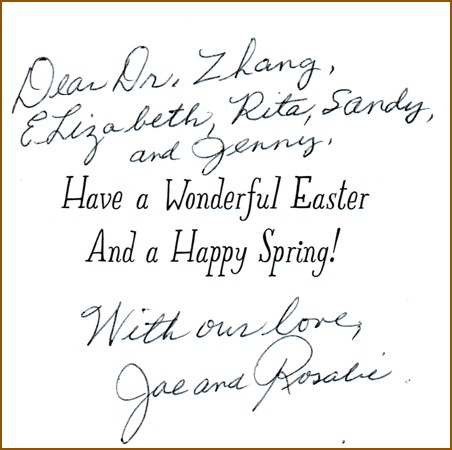 Dear Dr. Zhang,
Elizabeth, Rita, Sandy,
and Jenny.
Have a Wonderful Easter
And a Happy Spring!
With our love,
Joe and Rosalie